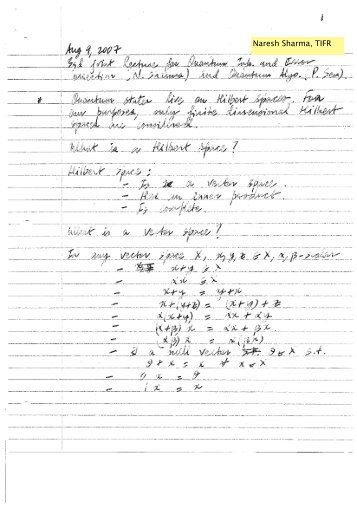 1
Naresh Sharma, TIFR
Aug 9, 2007
2nd joint Lecture for Quantum Info. and Error
correction (N. Sharma) and Quantum Algo. (P. Sen)
* Quantum states live on Hilbert Spaces. For
our purposes, only finite dimensional Hilbert
spaces are considered.
What is a Hilbert space?
Hilbert space:
- Is a vector space.
- Has an inner product.
- Is complete.
What is a vector space?
In any vector space X, x, y, z ∈ X, α, β - scalar
- x+y ∈ X
- αx ∈ X
- x+y = y+x
- x+(y+z) = (x+y)+z
- α(x+y) = αx + αy
- (α+β) x = αx + βx
- (αβ) x = α(βx)
- ∃ a null vector θ ∈ X s.t.
θ + x = x ∀ x ∈ X
- 0 x = θ
- 1 x = x